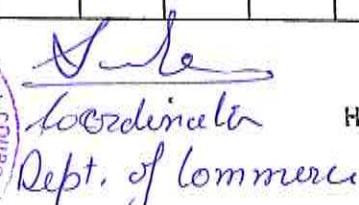 Coordinator
H
Dept. of Commerce